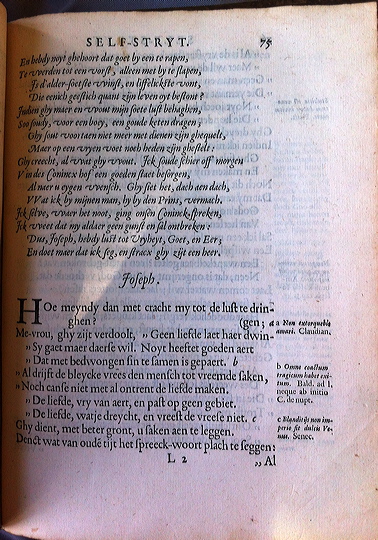 SELF-STRYT. 75
En hebdy noyt ghehoort dat goet by een te rapen,
Te worden tot een vorst, alleen met by te slapen,
Is d'alder-soetste winst, en lieffelickste vont,
Die eenich geestich quant zijn leven oyt bestont?
Indien ghy maer en wout mijn soete lust behaghen,
Soo soudy, voor een boey, een goude keten dragen;
Ghy sout voortaen niet meer met dienen zijn ghequelt,
Maer op een vryen voet noch heden zijn ghestelt:
Ghy creecht, al wat ghy wout. Ick soude schier oft morgen
V in des Conincx hof een goeden staet besorgen,
Al naer u eygen wensch. Ghy siet het, dach aen dach,
Wat ick by mijnen man, by by den Prins, vermach.
Ick selve, waer het noot, ging onsen Coninck spreken,
Ick weet dat my aldaer geen gunst en sal ontbreken:
Dus, Joseph, hebdy lust tot Vryheyt, Goet, en Eer;
En doet maer dat ick seg, en stracx ghy zijt een heer.
Joseph.
HOe meyndy dan met cracht my tot de lust te drin-
ghen? (gen; a
Me-vrou, ghy zijt verdoolt, „ Geen liefde laet haer dwin-
„ Sy gaet maer daerse wil. Noyt heeftet goeden aert
„ Dat met bedwongen sin te samen is gepaert. b
„ Al drijft de bleycke vrees den mensch tot vreemde saken,
„ Noch canse niet met al ontrent de liefde maken.
„ De liefde, vry van aert, en past op geen gebiet.
„ De liefde, watje dreycht, en vreest de vreese niet. c
Ghy dient, met beter gront, u saken aen te leggen.
Denct wat van oude tijt het spreeck-woort plach te seggen:
L 2 „ Al
a Non extorquebis
amari. Claudian.
b Omne coactum
tragicum habet exi-
tum. Bald. ad l.
neque ab initio
C. de nupt.
c Blanditijs non im-
perio fit dulcis Ve-
nus. Senec.